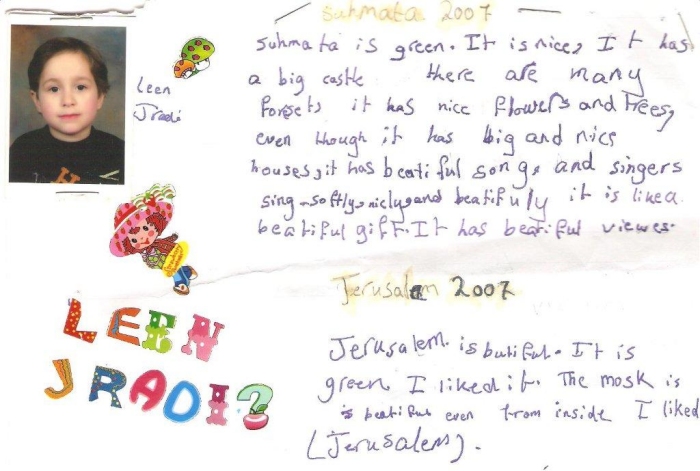 suhmata 2007
suhmata is green. It is nice, It has
a big castle there are many
forsets it has nice flowers and trees,
even though it has big and nice
houses, it has beatiful song, and singers
sing softly, nicly, and beatifuly it is like a
beautiful gift. It has beatiful viewes.
Leen
Jradi
Jerusalem 2007
Jerusalem is butiful. It is
green. I liked it. The mosk is
is beatiful even from inside I liked
(Jerusalem).
LEEN
JRADI?